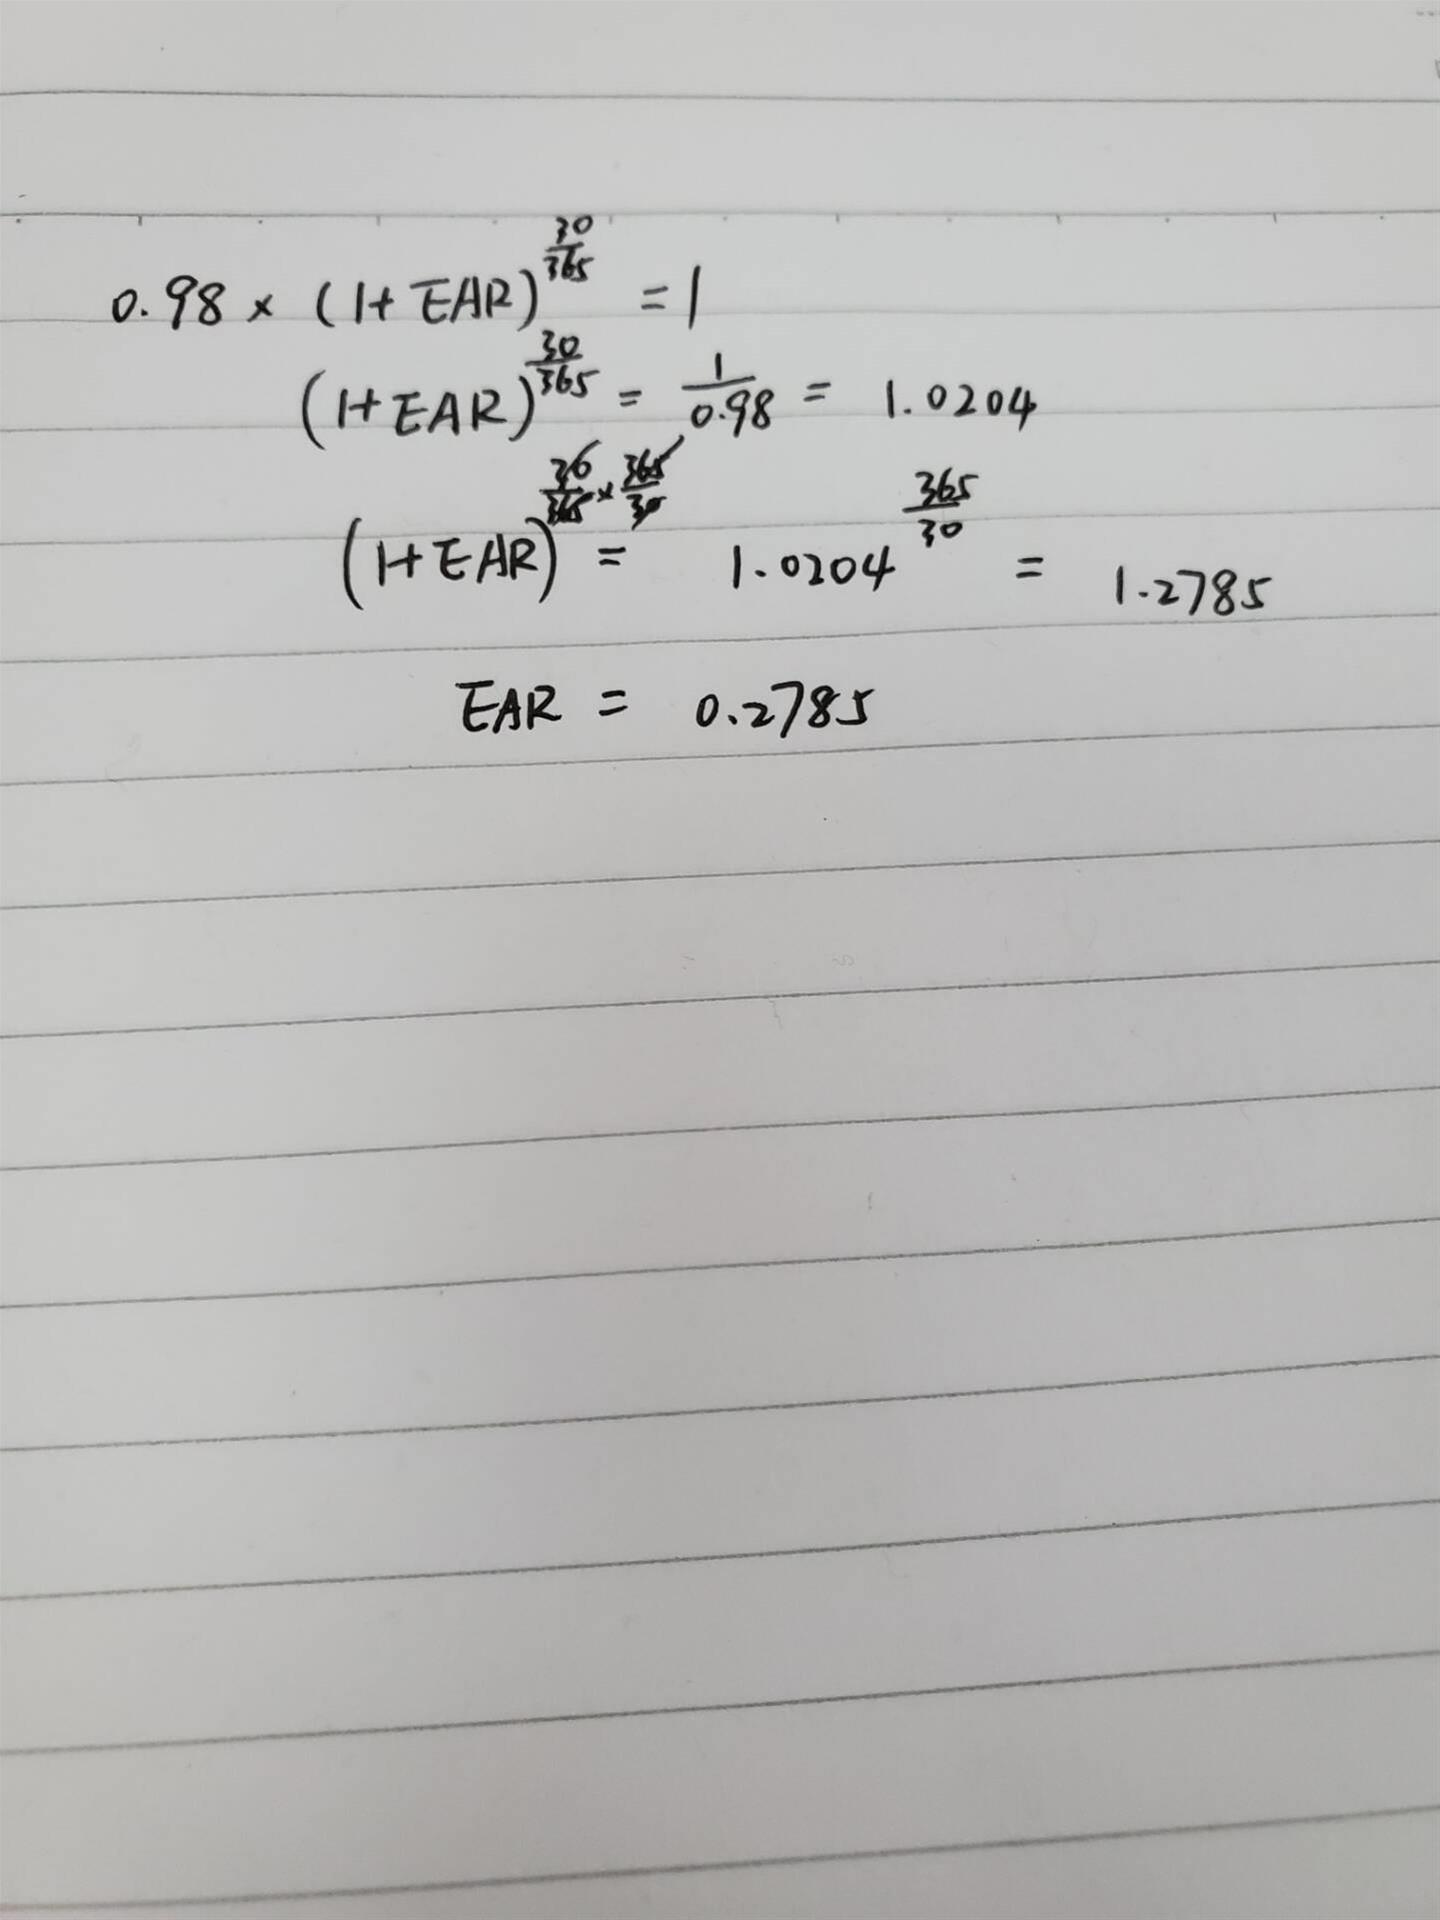 0.98 × (1+EAR)^(30/365) = 1
(1+EAR)^(30/365) = 1/0.98 = 1.0204
(1+EAR)^(30/365 × 365/30) = 1.0204^(365/30) = 1.2785
EAR = 0.2785